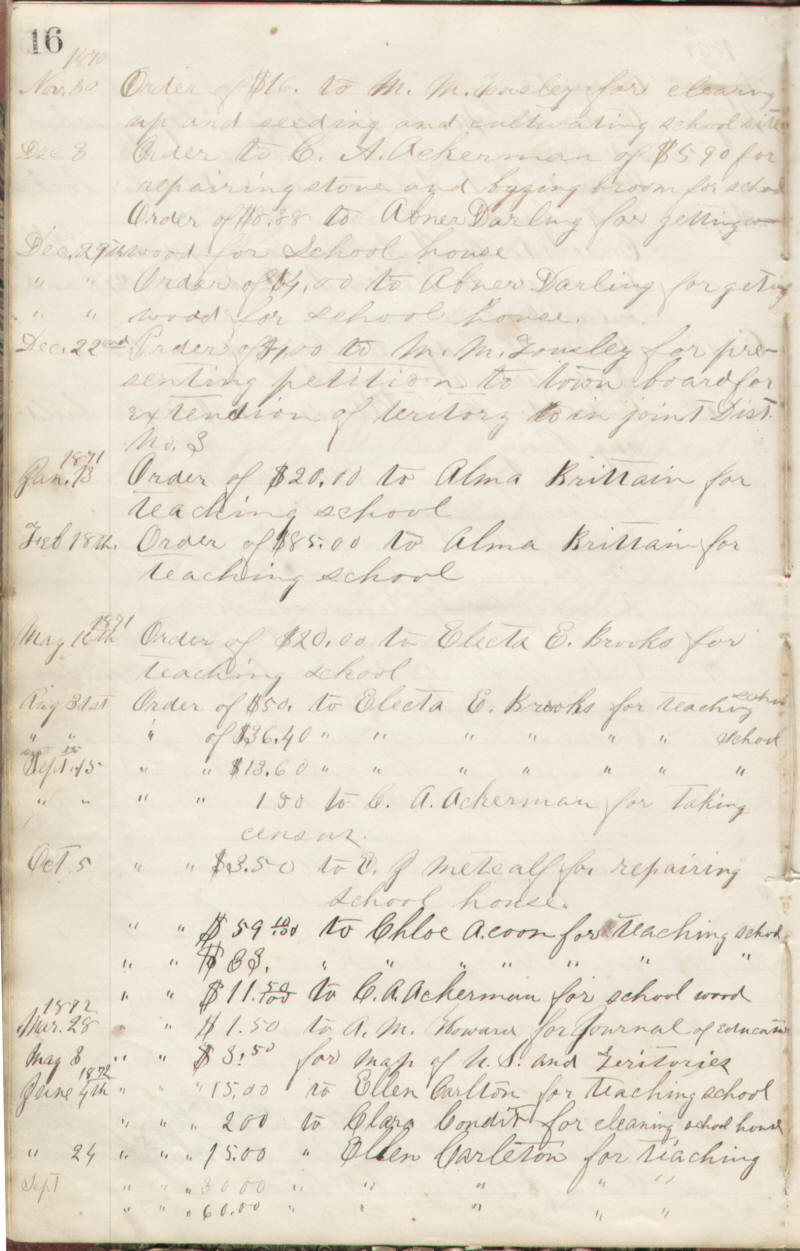 16
1870
Nov. 30 Order of $16. to M. M. Tousley for clearing
up and seeding and cultivating school site
Dec 8 Order to C. A. Ackerman of $5 90 for
repairing stove and bying broom for school
Order of $8.88 to Abner Darling for getting
Dec. 29th wood for School house
" " Order of $4.00 to Abner Darling for geting
" " wood for school house.
Dec. 22nd Order of $1.00 to M. M. Tousley for pre-
senting petition to town board for
extention of teritory to in joint Dist.
No. 3
1871
Jan. 13 Order of $20.00 to Alma Brittain for
teaching school
Feb 18th. Order of $85.00 to Alma Brittain for
teaching school
1871
May 16th Order of $20.00 to Electa E. Brooks for
teaching school
Aug 31st Order of $50. to Electa E. Brooks for teaching school
" " " of $36.40 " " " " " " school
Sept. 15 " " $13.60 " " " " " " "
" " " " 1 80 to C. A. Ackerman for taking
census.
Oct. 5 " " $3.50 to E. J Metcalf for repairing
school house.
" " $59 10/100 to Chloe A. coon for teaching school
" " $33. " " " " " " "
" " $11.50/100 to C. A. Ackerman for school wood
1872
Mar. 28 " " $1.50 to A. M. Howard for Journal of education
May 8 " " $3.50 for map of U. S. and Teritories
1872
June 4th " " " 15.00 to Ellen Carlton for teaching school
" " " 2 00 to Clara Condit for cleaning school house
" 24 " " " 15.00 " Ellen Carleton for teaching
Sept " " " 30 00 " " " " "
" " " 60.00 " " " " "